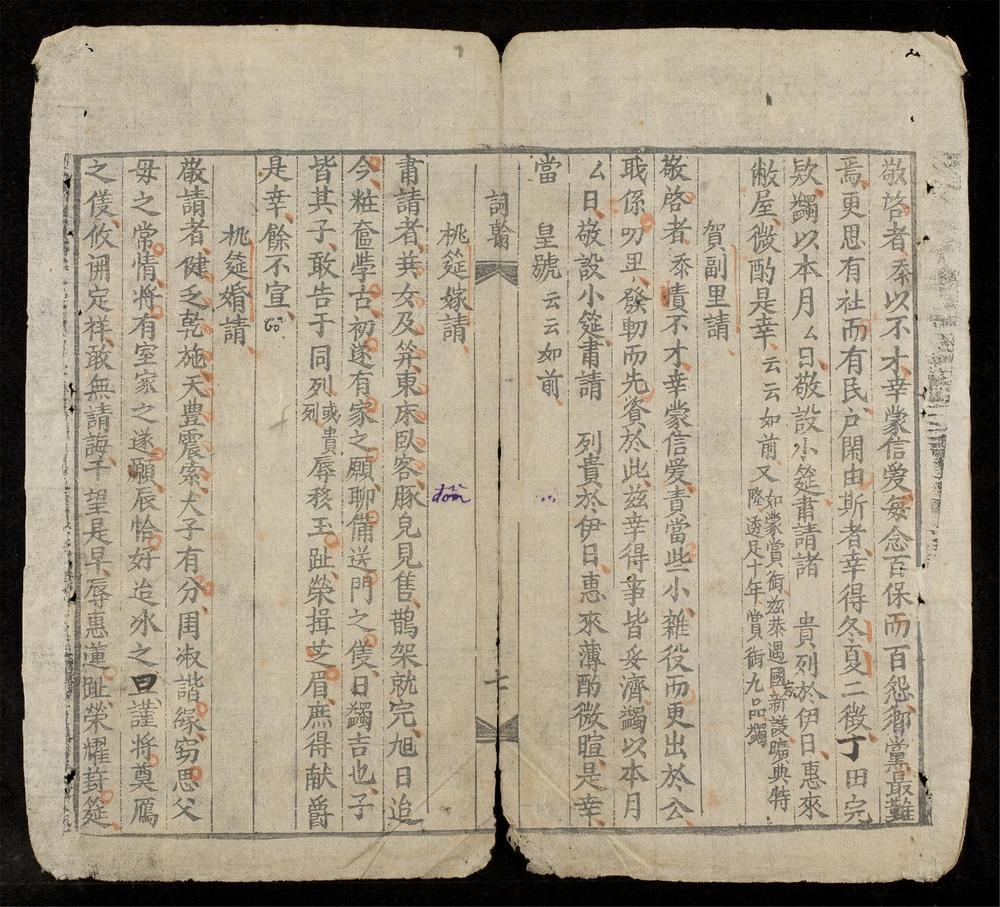 敬啓者忝以不才幸蒙信爱每念百保而百怨鄉黨最難
焉更思有社而有民户閑由斯者幸得冬夏二徵丁田完
欵蠲以本月厶日敬設小筵肅請諸 貴列於伊日惠來
敝屋微酌是幸云云如前又如蒙賞銜兹恭遇國家新護曠典特
隆透足十年賞銜九品蠲
賀副里請
敬啓者忝責不才幸蒙信爱責當些小雜役而更出於公
戢係叨里發軔而先資於此兹幸得事皆妥濟蠲以本月
厶日敬設小筵肅請 列貴於伊日惠來薄酌微暄是幸
當 皇號云云如前
詞翰
十
桃筵嫁請
肅請者英女及笄東床臥客豚兒見售鵲架就完旭日追
đồn
今粧奩學古初遂有家之願聊備送門之儀日蠲吉也子
皆其子敢告于同列或貴列辱移玉趾榮揖芝眉庶得献爵
是幸餘不宣
桃筵婚請
敬請者健乏乾施天豊震索犬子有分周淑諧緣窃思父
毋之常情將有室家之遂願辰恰好迨氷之旦謹將奠鴈
之儀攸詡定祥敢無請誨干望是早辱惠蓮趾榮耀葑筵